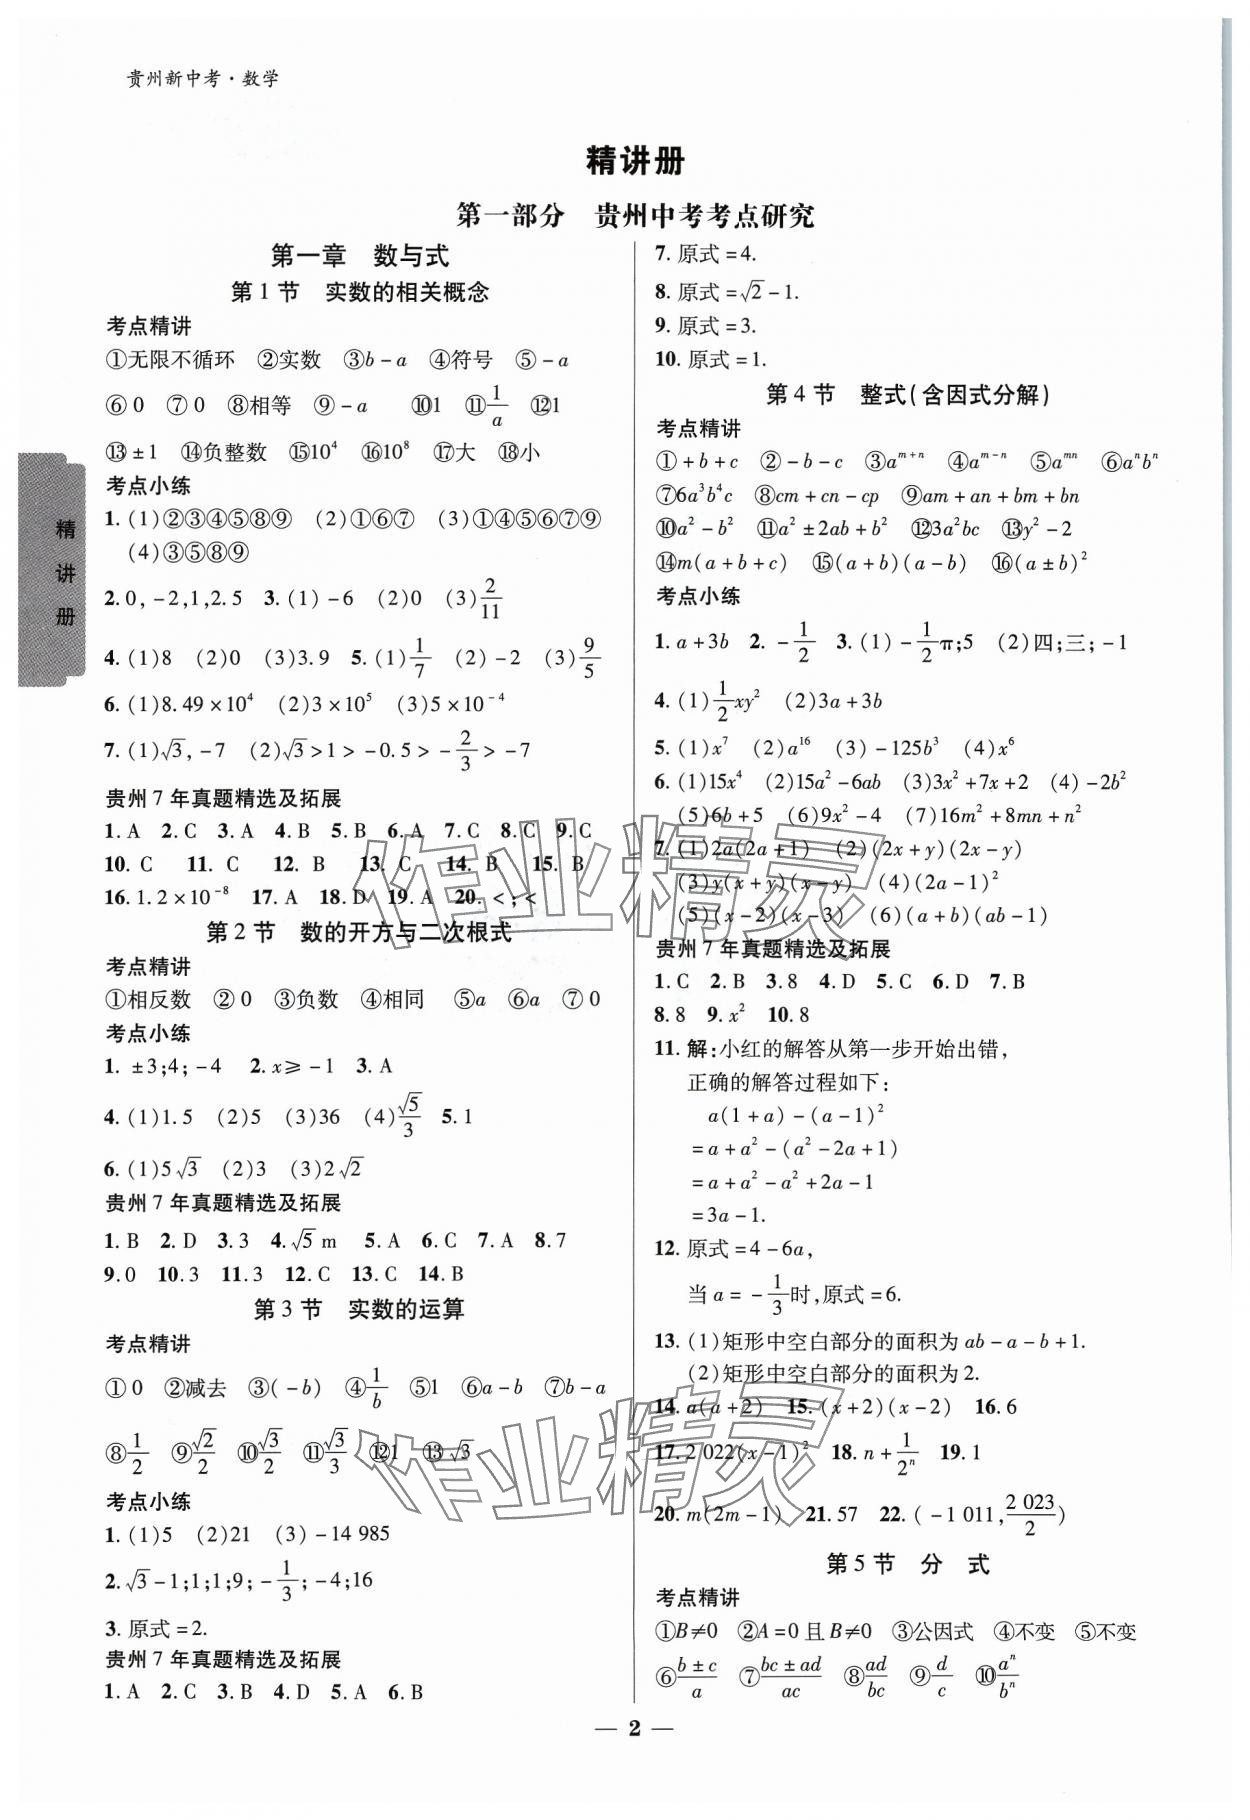 贵州新中考·数学
精讲册
第一部分 贵州中考考点研究
第一章 数与式
第1节 实数的相关概念
考点精讲
①无限不循环 ②实数 ③b－a ④符号 ⑤－a
⑥0 ⑦0 ⑧相等 ⑨－a ⑩1 ⑪1/a ⑫1
⑬±1 ⑭负整数 ⑮10⁴ ⑯10⁸ ⑰大 ⑱小
考点小练
1.(1)②③④⑤⑧⑨ (2)①⑥⑦ (3)①④⑤⑥⑦⑨
(4)③⑤⑧⑨
2.0,－2,1,2.5 3.(1)－6 (2)0 (3)2/11
4.(1)8 (2)0 (3)3.9 5.(1)1/7 (2)－2 (3)9/5
6.(1)8.49×10⁴ (2)3×10⁵ (3)5×10⁻⁴
7.(1)√3,－7 (2)√3>1>－0.5>－2/3>－7
贵州7年真题精选及拓展
1.A 2.C 3.A 4.B 5.B 6.A 7.C 8.C 9.C
10.C 11.C 12.B 13.C 14.B 15.B
16.1.2×10⁻⁸ 17.A 18.D 19.A 20.<;<
第2节 数的开方与二次根式
考点精讲
①相反数 ②0 ③负数 ④相同 ⑤a ⑥a ⑦0
考点小练
1.±3;4;－4 2.x≥－1 3.A
4.(1)1.5 (2)5 (3)36 (4)√5/3 5.1
6.(1)5√3 (2)3 (3)2√2
贵州7年真题精选及拓展
1.B 2.D 3.3 4.√5 m 5.A 6.C 7.A 8.7
9.0 10.3 11.3 12.C 13.C 14.B
第3节 实数的运算
考点精讲
①0 ②减去 ③(－b) ④1/b ⑤1 ⑥a－b ⑦b－a
⑧1/2 ⑨√2/2 ⑩√3/2 ⑪√3/3 ⑫1 ⑬√3
考点小练
1.(1)5 (2)21 (3)－14 985
2.√3－1;1;1;9;－1/3;－4;16
3.原式=2.
贵州7年真题精选及拓展
1.A 2.C 3.B 4.D 5.A 6.B
7.原式=4.
8.原式=√2－1.
9.原式=3.
10.原式=1.
第4节 整式(含因式分解)
考点精讲
①+b+c ②－b－c ③aᵐ⁺ⁿ ④aᵐ⁻ⁿ ⑤aᵐⁿ ⑥aⁿbⁿ
⑦6a³b⁴c ⑧cm+cn－cp ⑨am+an+bm+bn
⑩a²－b² ⑪a²±2ab+b² ⑫3a²bc ⑬y²－2
⑭m(a+b+c) ⑮(a+b)(a－b) ⑯(a±b)²
考点小练
1.a+3b 2.－1/2 3.(1)－1/2π;5 (2)四;三;－1
4.(1)1/2xy² (2)3a+3b
5.(1)x⁷ (2)a¹⁶ (3)－125b³ (4)x⁶
6.(1)15x⁴ (2)15a²－6ab (3)3x²+7x+2 (4)－2b²
(5)6b+5 (6)9x²－4 (7)16m²+8mn+n²
7.(1)2a(2a+1) (2)(2x+y)(2x－y)
(3)y(x+y)(x－y) (4)(2a－1)²
(5)(x－2)(x－3) (6)(a+b)(ab－1)
贵州7年真题精选及拓展
1.C 2.B 3.8 4.D 5.C 6.D 7.B
8.8 9.x² 10.8
11.解:小红的解答从第一步开始出错,
正确的解答过程如下:
a(1+a)－(a－1)²
=a+a²－(a²－2a+1)
=a+a²－a²+2a－1
=3a－1.
12.原式=4－6a,
当a=－1/3时,原式=6.
13.(1)矩形中空白部分的面积为ab－a－b+1.
(2)矩形中空白部分的面积为2.
14.a(a+2) 15.(x+2)(x－2) 16.6
17.2 022(x－1)² 18.n+1/2ⁿ 19.1
20.m(2m－1) 21.57 22.(－1 011,2 023/2)
第5节 分 式
考点精讲
①B≠0 ②A=0且B≠0 ③公因式 ④不变 ⑤不变
⑥(b±c)/a ⑦(bc±ad)/ac ⑧ad/bc ⑨d/c ⑩aⁿ/bⁿ
— 2 —
精讲册
作业精灵
作业精灵